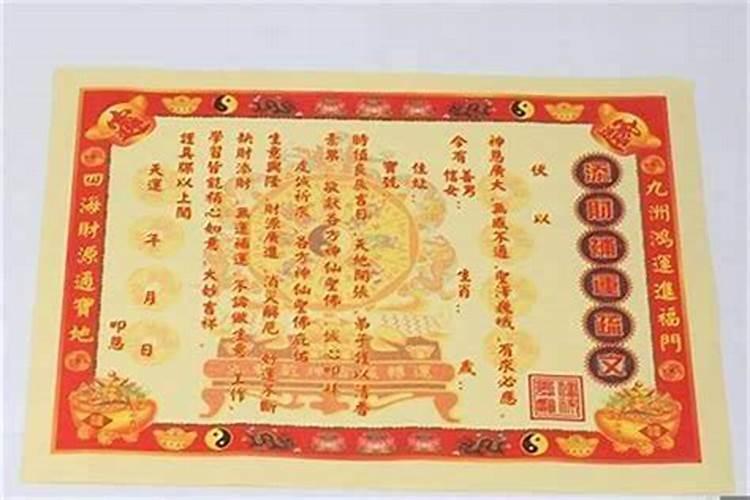 九洲鴻運進福門
添財補運疏文
伏以
神恩廣大 無感不通 聖澤巍峨 有求必應
今有善男信女： 生肖： 歲：
住址：
寶號
時值良辰吉日 天地開張 弟子僅以清香
素果 敬獻各方神仙聖佛 誠心叩拜
虔誠祈求 各方神仙聖佛庇佑
生意興隆 財源廣進 消災解厄 好運不斷
缺財添財 無運補運 不論做生意 工作、
學習皆能稱心如意 大妙吉祥
謹具疏以上聞
天運 年 月 日 叩懇
四海財源通寶地